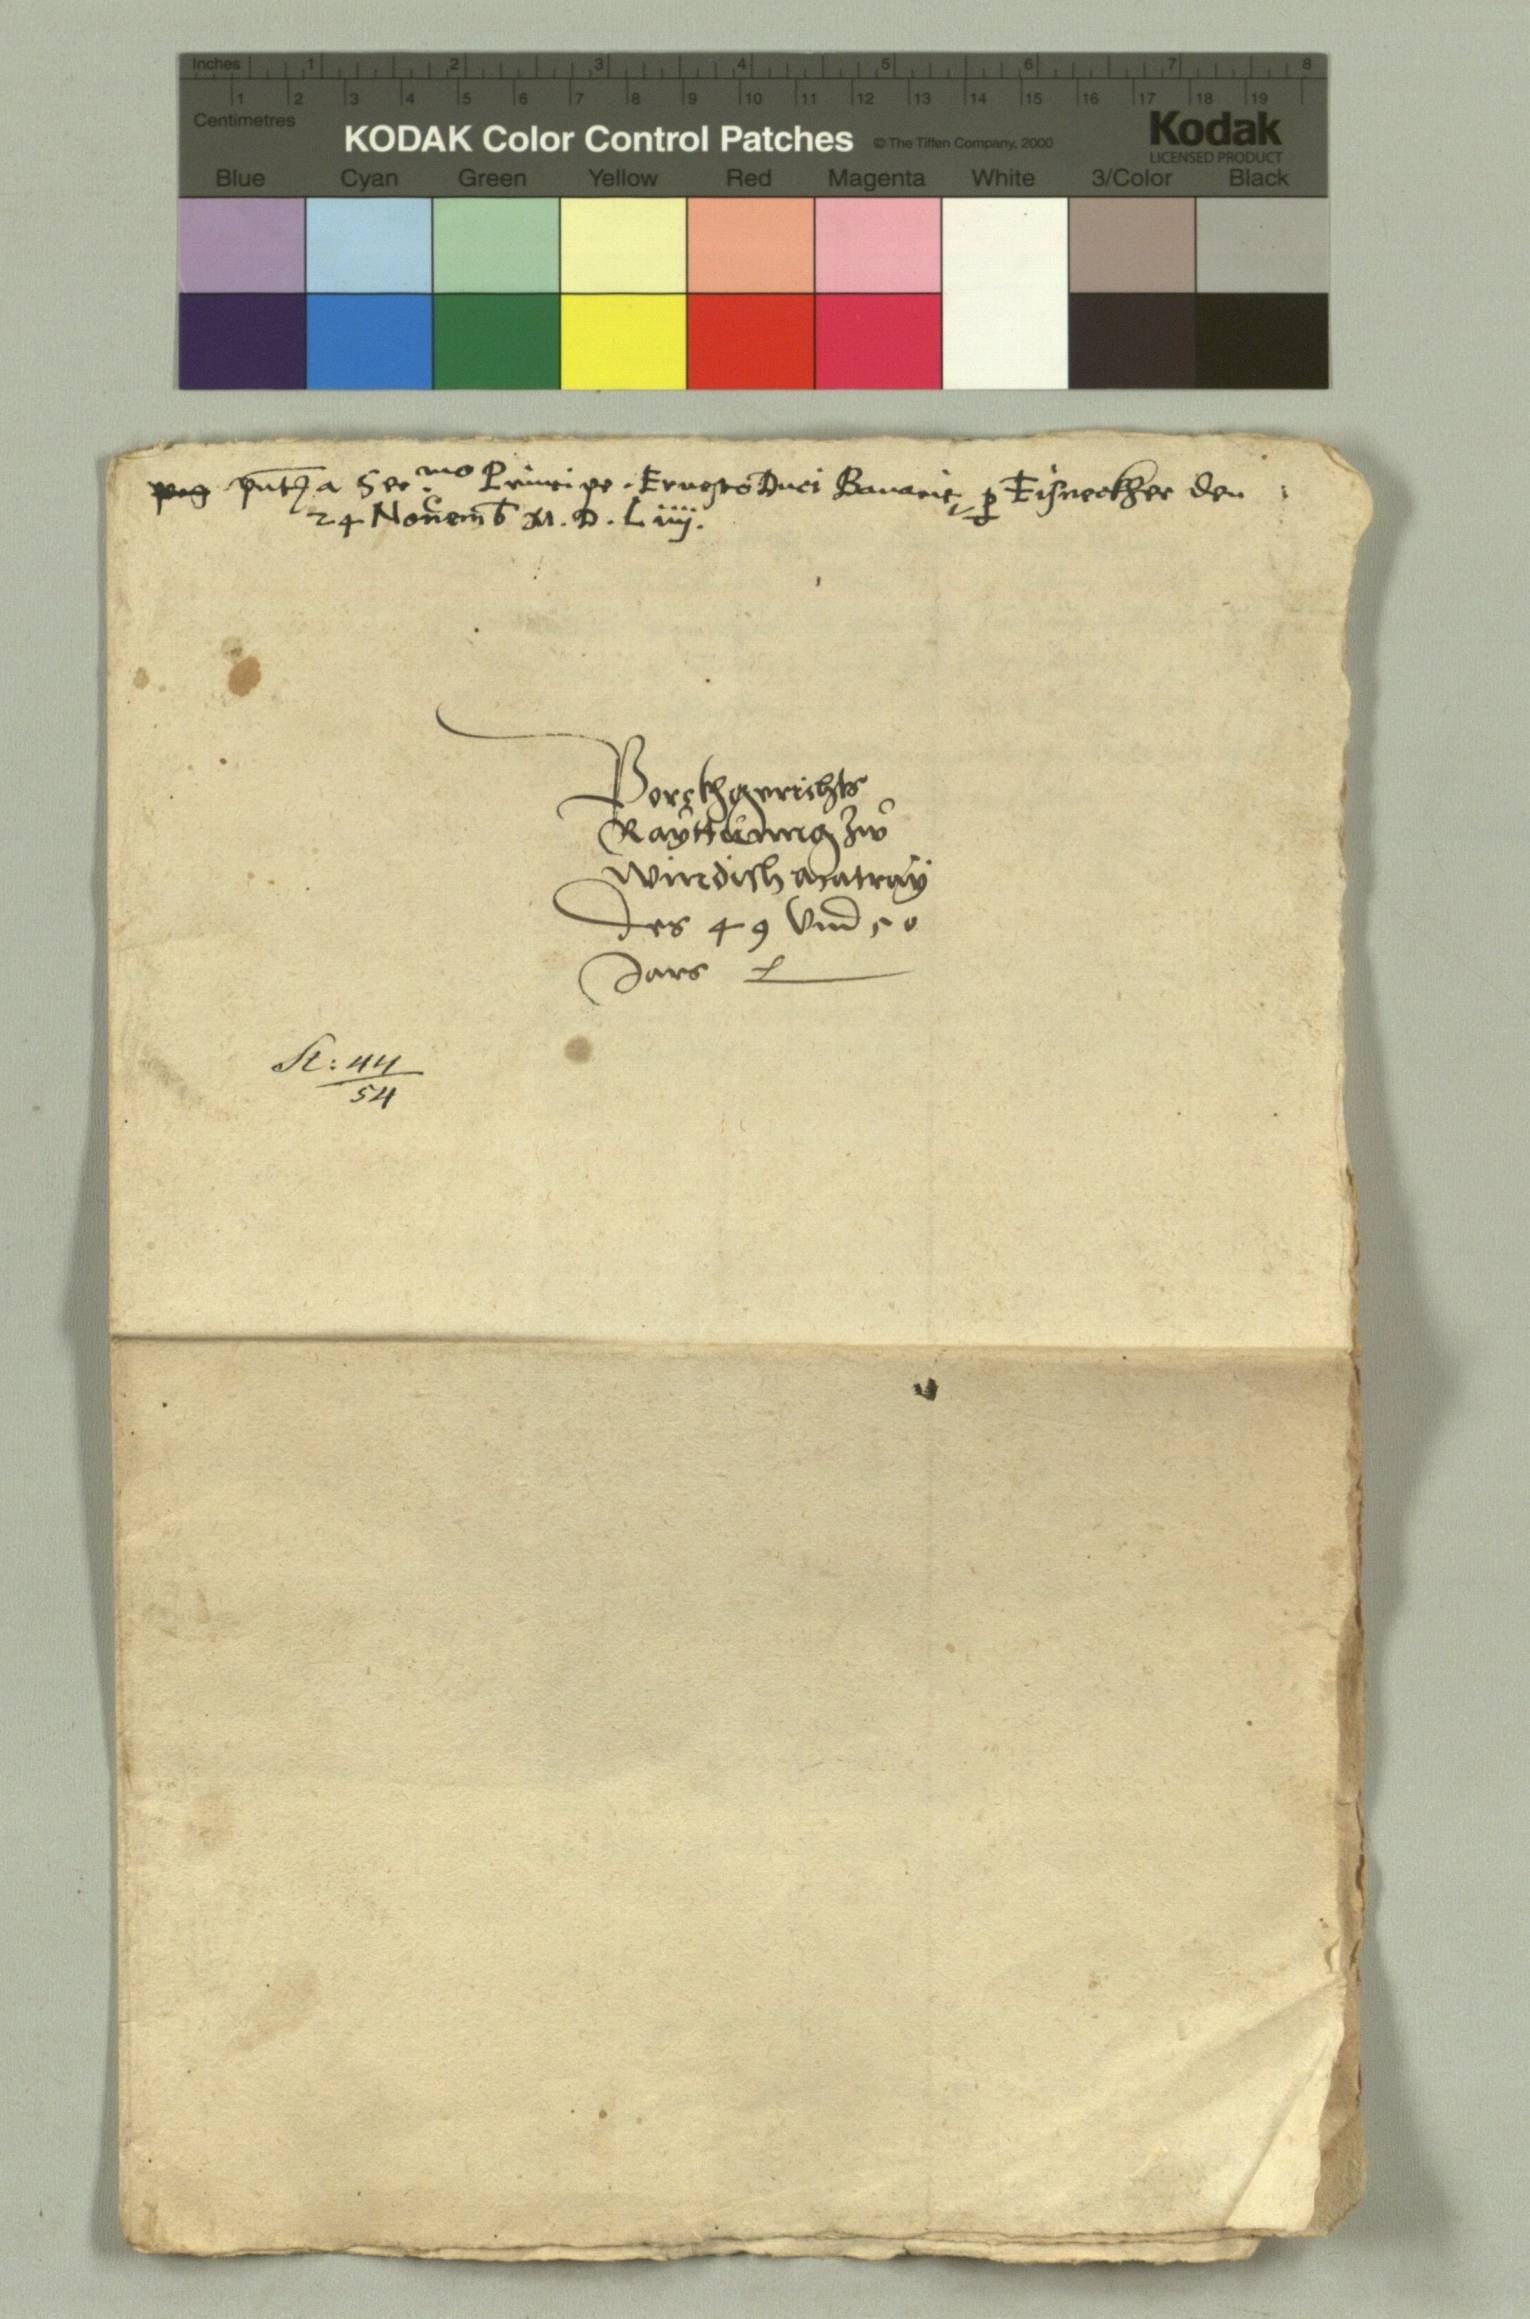 Inches 1 2 3 4 5 6 7 8
1 2 3 4 5 6 7 8 9 10 11 12 13 14 15 16 17 18 19
Centimetres
KODAK Color Control Patches © The Tiffen Company, 2000 Kodak
LICENSED PRODUCT
Blue Cyan Green Yellow Red Magenta White 3/Color Black
a Ser.mo Principe Ernesto Duci Bavarie, p Eisneckher den
24 Novemb M. D. Liiij.
Perckhgerichts
Raÿttung Zw
Windisch Matraÿ
des 49 Und 50
Jars
St: 44
54